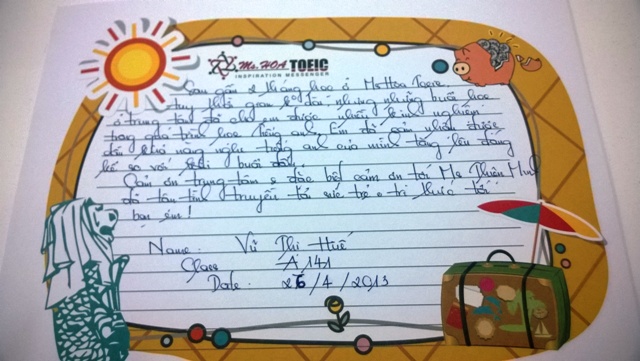 Ms. HOA TOEIC
INSPIRATION MESSENGER
Sau gần 2 tháng học ở Ms Hoa Toeic
tuy thời gian k dài nhưng những buổi học
ở trung tâm đã cho em được nhiều kinh nghiệm
trong quá trình học tiếng anh. Em đã cảm nhận được
khả năng nghe tiếng anh của mình tăng lên đáng
kể so với buổi đầu.
Cảm ơn trung tâm & đặc biệt cảm ơn tới Ms Thiên Minh
đã tận tình truyền tải sức trẻ & tri thức tới
bọn em!
Name: Vũ Thị Huế
Class A141
Date: 26/4/2013